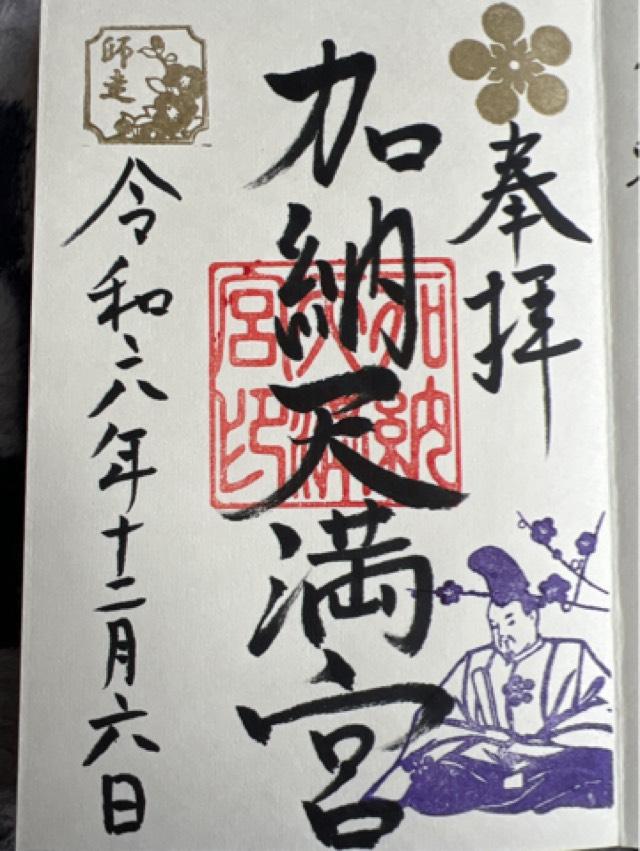 奉拝
加納天満宮
加納
天満
宮印
師走
令和六年十二月六日